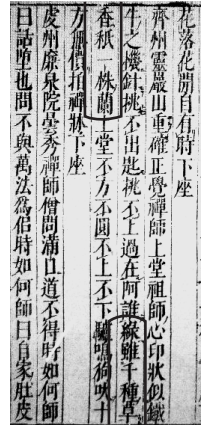 花落花開自有時下座
齊州靈巖山重確正覺禪師上堂祖師心印狀似鐵
牛之機針挑不出匙挑不上過在阿誰綠雖千種草
香秖一株蘭上堂不方不圓不上不下驢鳴狗吠十
方無價拍禪牀下座
處州廉泉院曇秀禪師僧問滿口道不得時如何師
曰話墮也問不與萬法爲侶時如何師曰自家肚皮